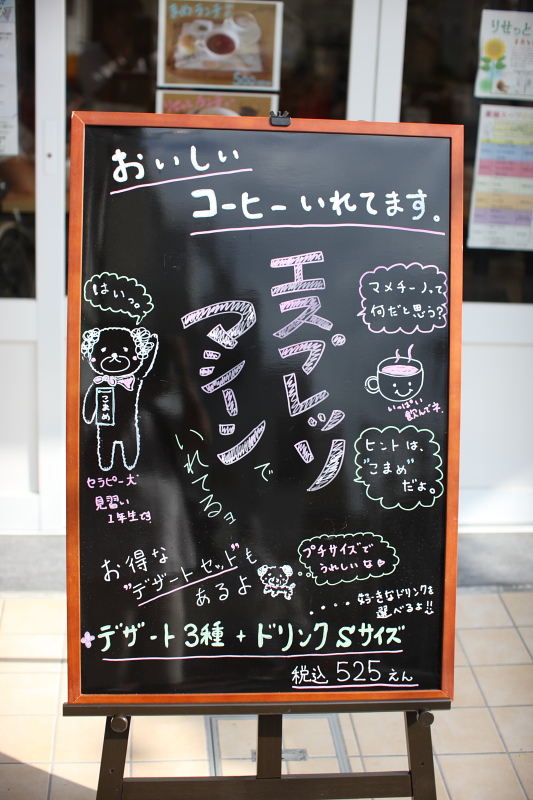 おいしい
コーヒーいれてます。
エスプレッソ
マシーン
で
いれてるヨ
はいっ。
こまめ
セラピー犬
見習い
1年生です
マメチーノって
何だと思う?
いっぱい
飲んでネ
ヒントは、
"こまめ"
だよ。
お得な
"デザートセット"も
あるよ
プチサイズで
うれしいな
・・・・好きなドリンクを
選べるよ!!
+デザート3種+ドリンクSサイズ
税込 525えん
りせっと